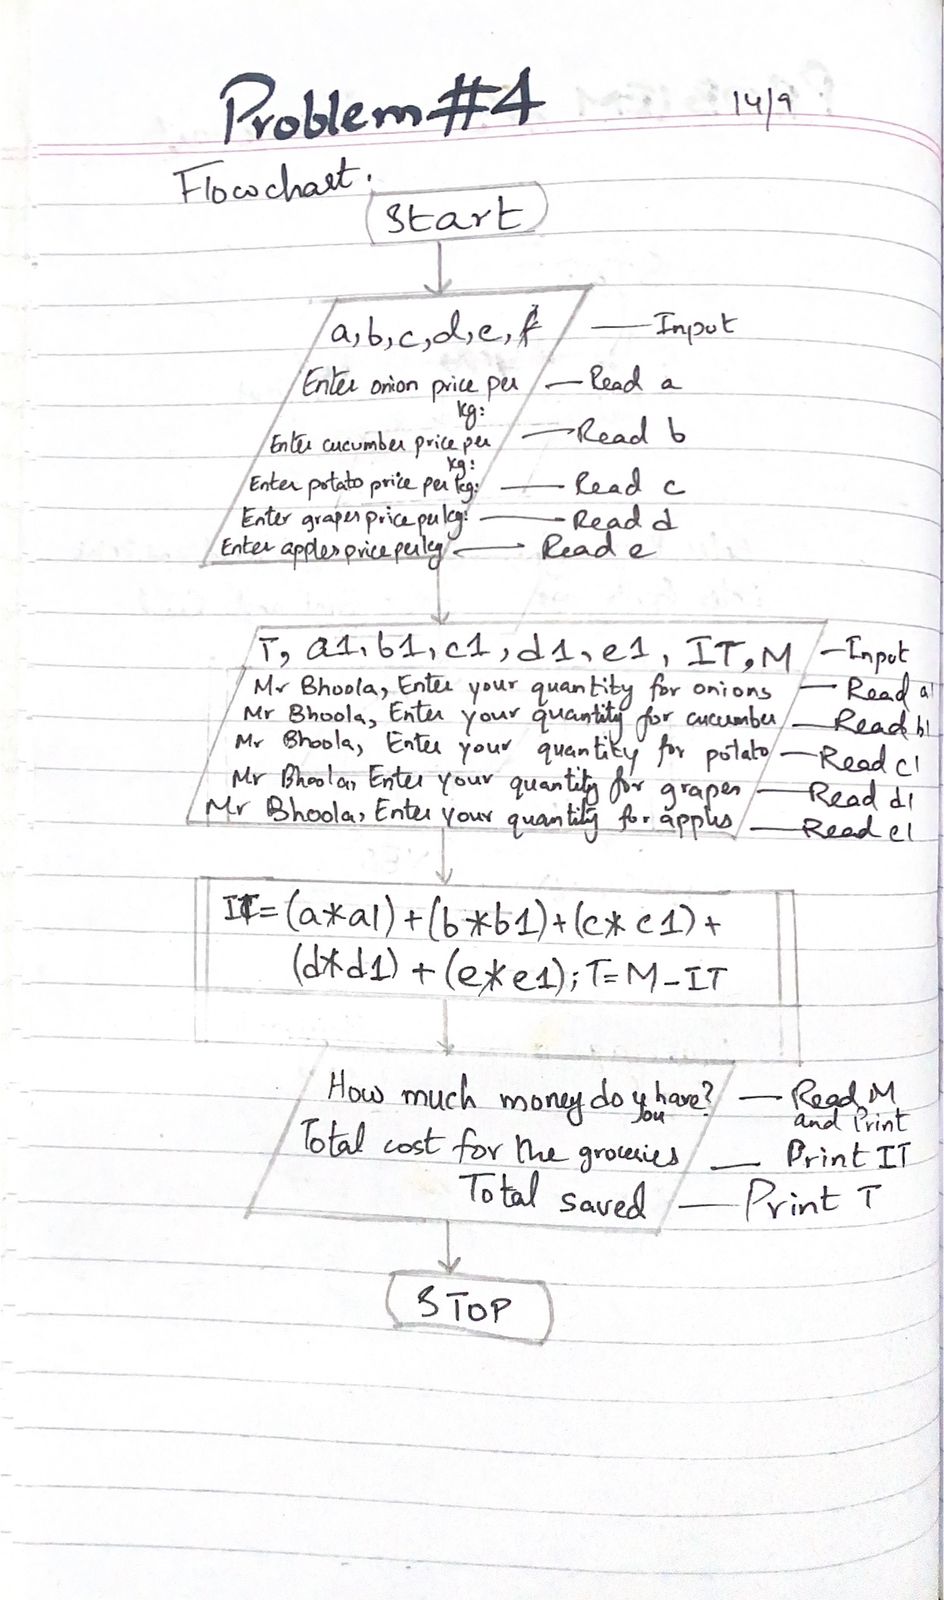 Problem #4
14/9
Flowchart.
Start
a, b, c, d, e, — Input
Enter onion price per kg: — Read a
Enter cucumber price per kg: — Read b
Enter potato price per kg: — Read c
Enter grapes price per kg: — Read d
Enter apples price per kg — Read e
T, a1, b1, c1, d1, e1, IT, M — Input
Mr Bhoola, Enter your quantity for onions — Read a1
Mr Bhoola, Enter your quantity for cucumber — Read b1
Mr Bhoola, Enter your quantity for potato — Read c1
Mr Bhoola, Enter your quantity for grapes — Read d1
Mr Bhoola, Enter your quantity for apples — Read e1
IT = (a*a1) + (b*b1) + (c*c1) +
(d*d1) + (e*e1); T = M - IT
How much money do you have? — Read M and Print
Total cost for the groceries — Print IT
Total saved — Print T
STOP